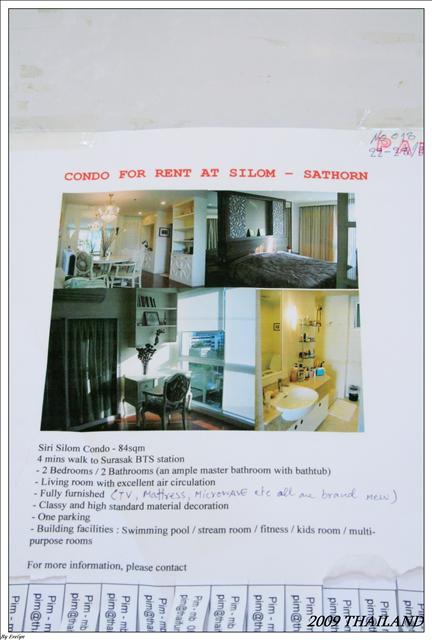 No 018
PAI
22-29/
CONDO FOR RENT AT SILOM – SATHORN
Siri Silom Condo - 84sqm
4 mins walk to Surasak BTS station
- 2 Bedrooms / 2 Bathrooms (an ample master bathroom with bathtub)
- Living room with excellent air circulation
- Fully furnished (TV, Mattress, Microwave etc all are brand new)
- Classy and high standard material decoration
- One parking
- Building facilities : Swimming pool / stream room / fitness / kids room / multi-
purpose rooms
For more information, please contact
Pim - mb
pim@tha
Pim - mb
pim@tha
Pim - mb
pim@tha
2009 THAILAND
By Evelyn